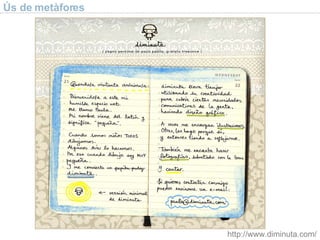 Ús de metàfores
diminuta
( página personal de paula padilla, graphic créateure )
WEDNESDAY
21
Querido/a visitante anónimo/a:
Bienvenido/a a este mi
humilde espacio web.
Me llamo Paula.
Mi nombre viene del latín y
significa "pequeña".
Cuando somos niños TODOS
dibujamos.
Algunos aún lo hacemos.
En eso cuando dibujo soy MUY
pequeña.
Y me convierto en garabato-padilla
diminuta.
← versión mínima
de diminuta.
22
diminuta lleva tiempo
utilizando su creatividad
para cubrir ciertas necesidades
comunicativas de la gente,
haciendo diseño gráfico.
A veces me encargan ilustraciones.
Otras, las hago porque sí,
y entonces tiendo a reflejarme.
También me encanta hacer
fotografías,
Y cantar.
Si quieres contactar conmigo
puedes enviarme un e-mail:
paula@diminuta.com
http://www.diminuta.com/